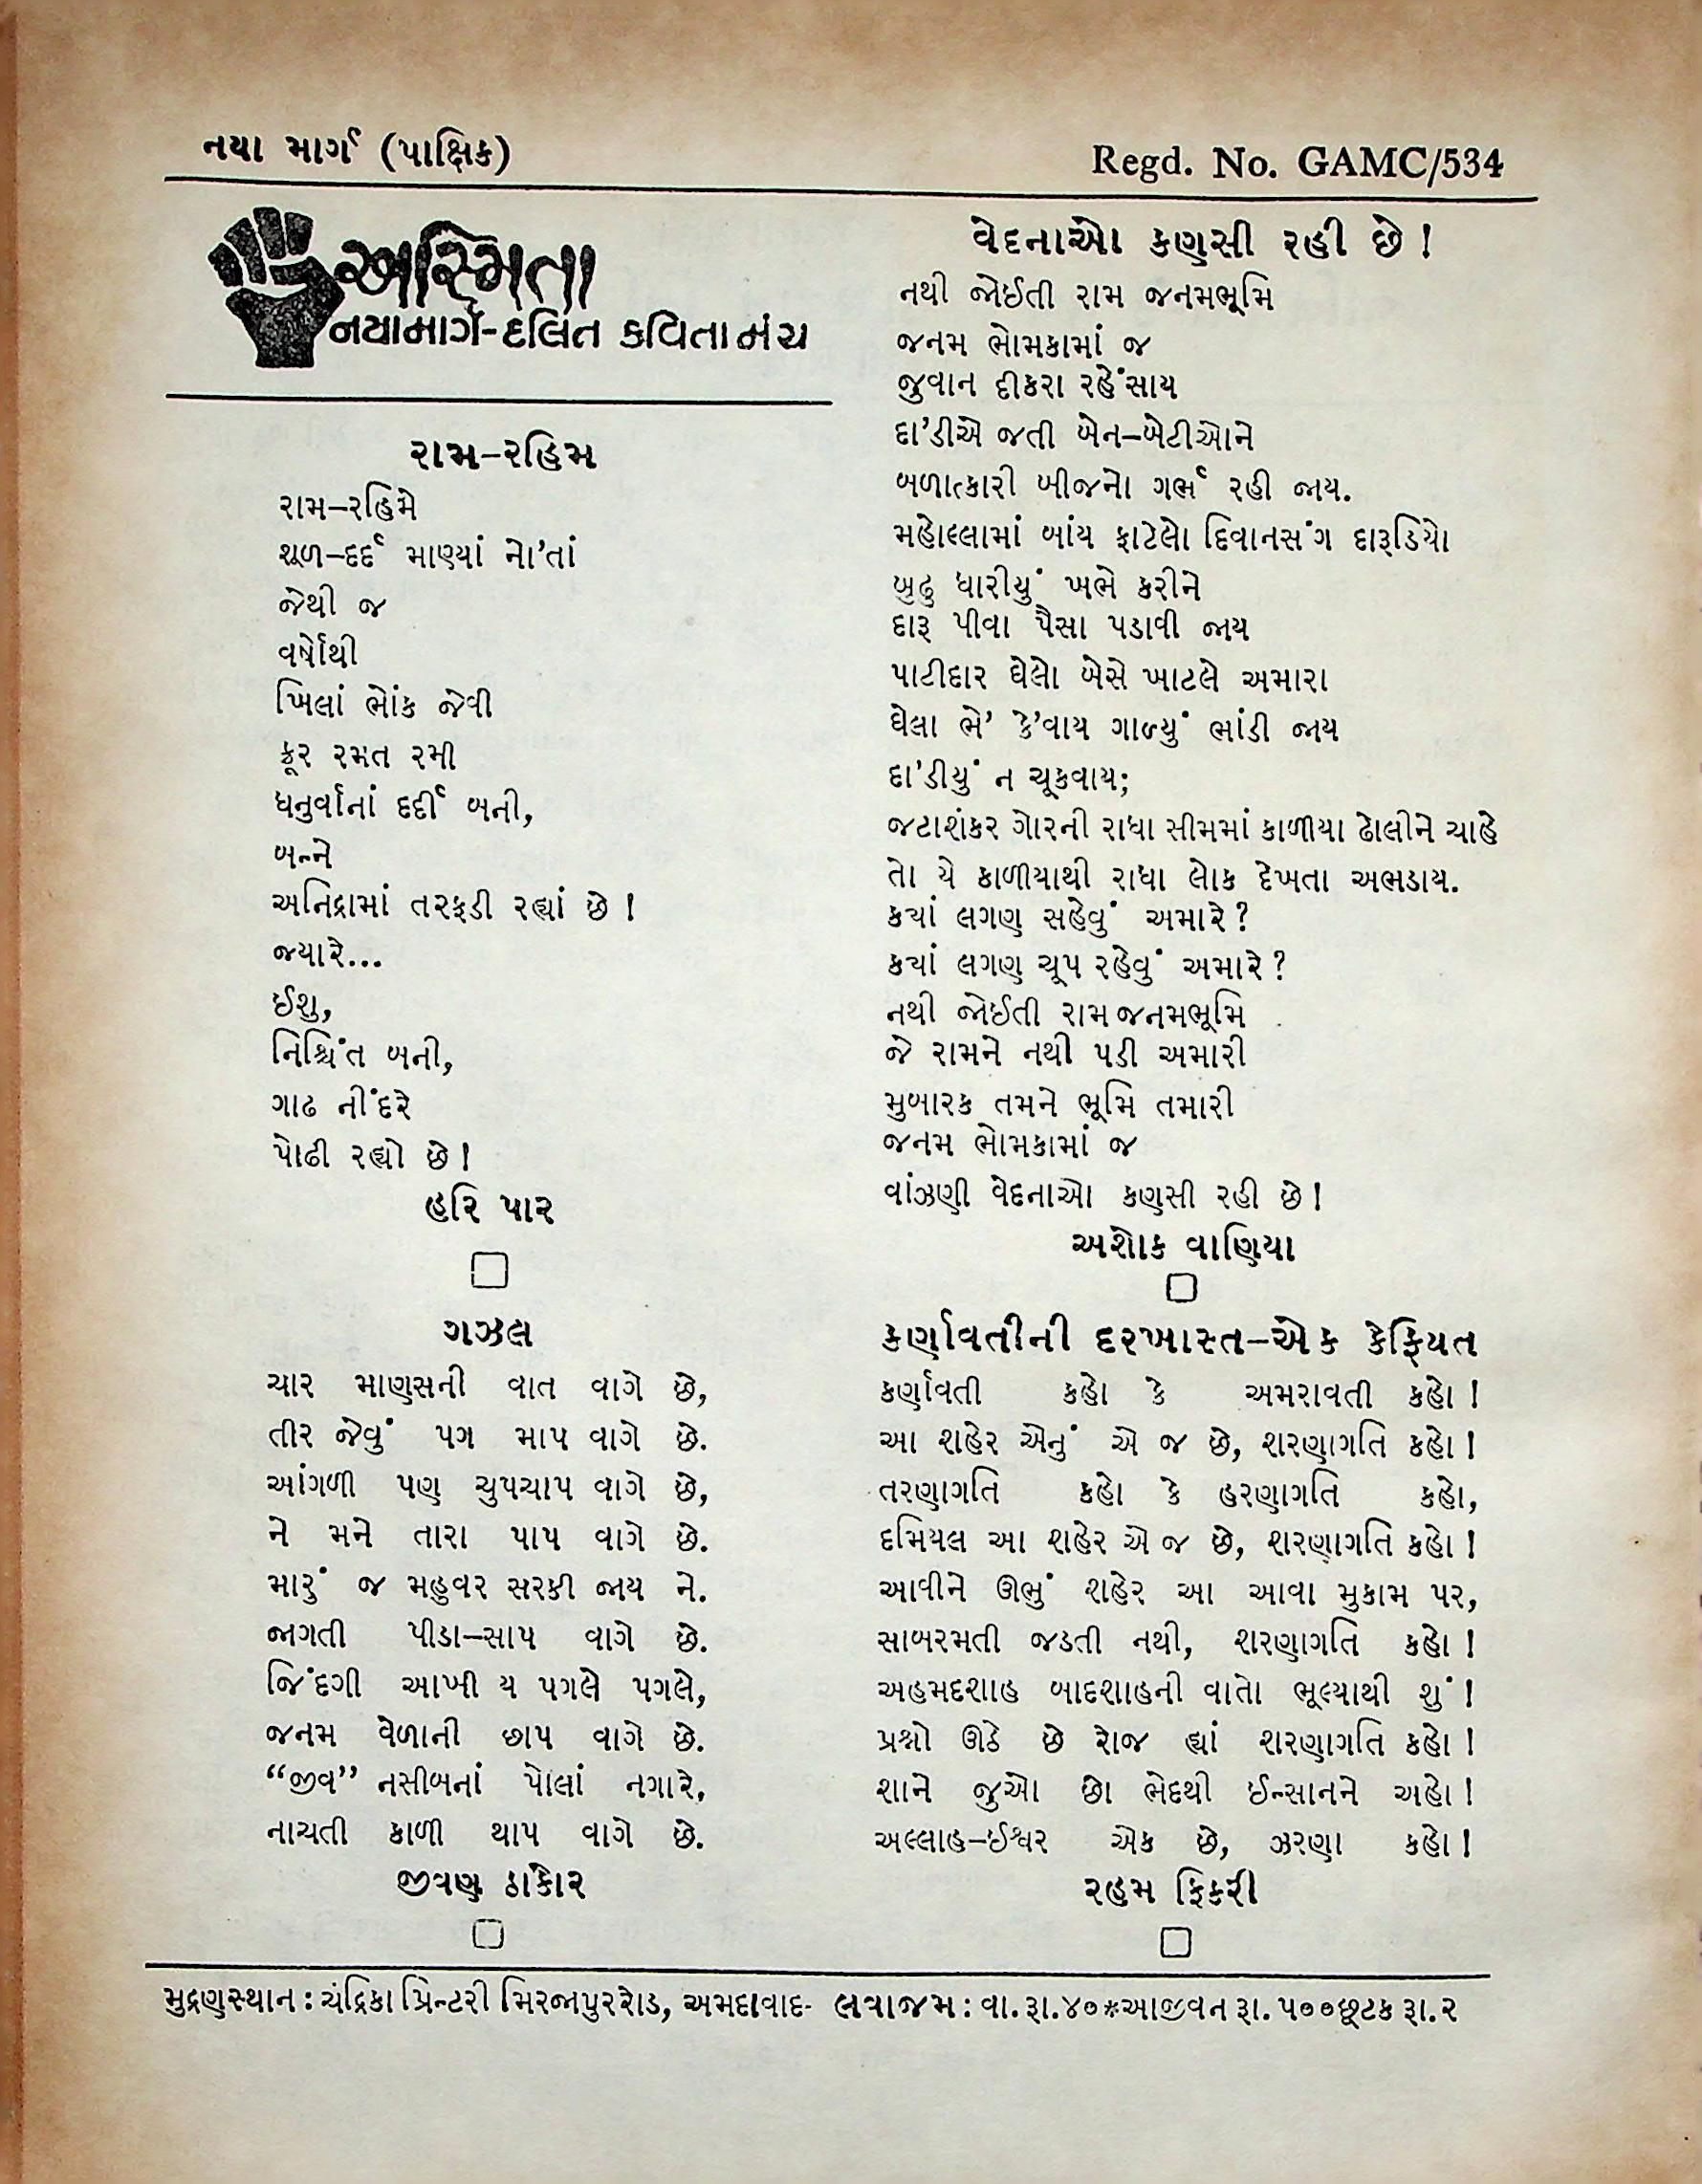 નયા માર્ગ (પાક્ષિક)
Regd. No. GAMC/534
અસ્મિતા
નયામાર્ગ-દલિત કવિતામંચ
રામ–રહિમ
રામ–રહિમે
શૂળ–દર્દ માણ્યાં નો'તાં
જેથી જ
વર્ષોથી
ખિલાં ભોંક જેવી
ક્રૂર રમત રમી
ધનુર્વાનાં દર્દી બની,
બન્ને
અનિદ્રામાં તરફડી રહ્યાં છે !
જ્યારે...
ઈશુ,
નિશ્ચિંત બની,
ગાઢ નીંદરે
પોઢી રહ્યો છે !
હરિ પાર
ગઝલ
ચાર માણસની વાત વાગે છે,
તીર જેવું પગ માપ વાગે છે.
આંગળી પણ ચુપચાપ વાગે છે,
ને મને તારા પાપ વાગે છે.
મારું જ મહુવર સરકી જાય ને.
જાગતી પીડા–સાપ વાગે છે.
જિંદગી આખી ય પગલે પગલે,
જનમ વેળાની છાપ વાગે છે.
“જીવ” નસીબનાં પોલાં નગારે,
નાચતી કાળી થાપ વાગે છે.
જીવણ ઠાકોર
વેદનાઓ કણસી રહી છે !
નથી જોઈતી રામ જનમભૂમિ
જનમ ભોમકામાં જ
જુવાન દીકરા રહેંસાય
દા'ડીએ જતી બેન–બેટીઓને
બળાત્કારી બીજનો ગર્ભ રહી જાય.
મહોલ્લામાં બાંય ફાટેલો દિવાનસંગ દારૂડિયો
બુઢુ ધારીયું ખભે કરીને
દારૂ પીવા પૈસા પડાવી જાય
પાટીદાર ઘેલો બેસે ખાટલે અમારા
ઘેલા ભે' કે'વાય ગાળ્યું ભાંડી જાય
દા'ડીયું ન ચૂકવાય;
જટાશંકર ગોરની રાધા સીમમાં કાળીયા ઢોલીને ચાહે
તો યે કાળીયાથી રાધા લોક દેખતા અભડાય.
ક્યાં લગણ સહેવું અમારે ?
ક્યાં લગણ ચૂપ રહેવું અમારે ?
નથી જોઈતી રામ જનમભૂમિ
જે રામને નથી પડી અમારી
મુબારક તમને ભૂમિ તમારી
જનમ ભોમકામાં જ
વાંઝણી વેદનાઓ કણસી રહી છે !
અશોક વાણિયા
કર્ણાવતીની દરખાસ્ત–એક કેફિયત
કર્ણાવતી કહો કે અમરાવતી કહો !
આ શહેર એનું એ જ છે, શરણાગતિ કહો !
તરણાગતિ કહો કે હરણાગતિ કહો,
દમિયલ આ શહેર એ જ છે, શરણાગતિ કહો !
આવીને ઊભું શહેર આ આવા મુકામ પર,
સાબરમતી જડતી નથી, શરણાગતિ કહો !
અહમદશાહ બાદશાહની વાતો ભૂલ્યાથી શું !
પ્રશ્નો ઊઠે છે રોજ હ્યાં શરણાગતિ કહો !
શાને જુઓ છો ભેદથી ઈન્સાનને અહો !
અલ્લાહ–ઈશ્વર એક છે, ઝરણા કહો !
રહમ ફિકરી
મુદ્રણસ્થાન : ચંદ્રિકા પ્રિન્ટરી મિરજાપુરરોડ, અમદાવાદ- લવાજમ : વા. રૂા. ૪૦*આજીવન રૂા. ૫૦૦છૂટક રૂા. ૨